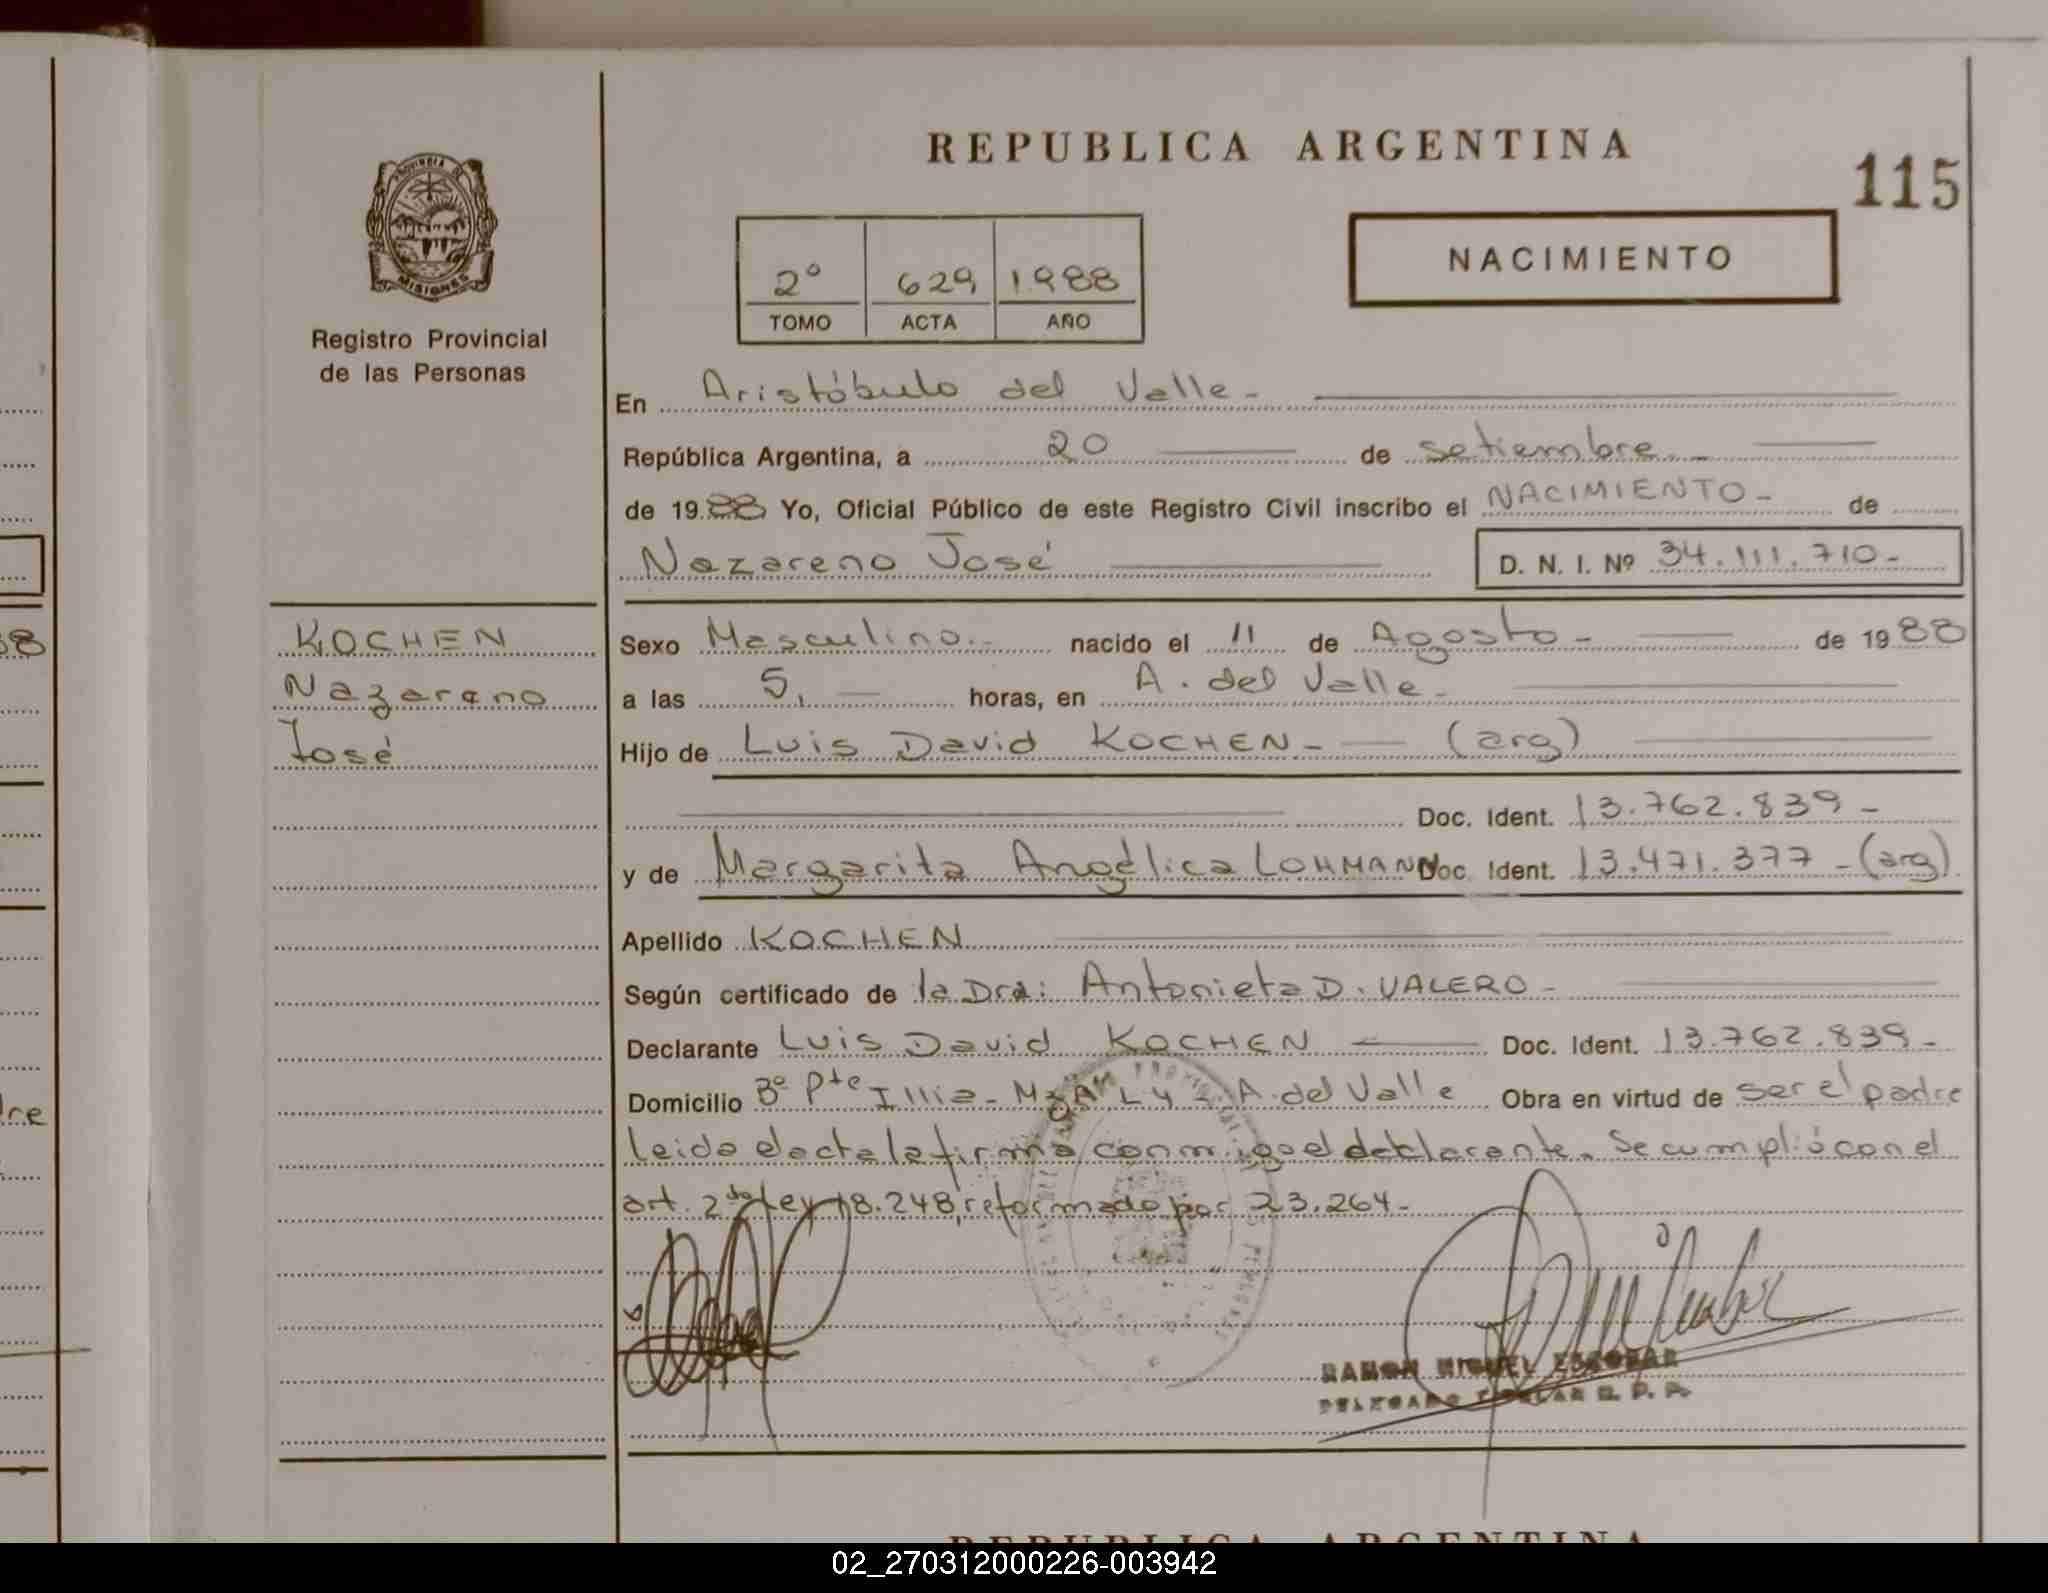 REPUBLICA ARGENTINA
115
PROVINCIA DE
MISIONES
Registro Provincial
de las Personas
2º 629 1988
TOMO ACTA AÑO
NACIMIENTO
En Aristóbulo del Valle -
República Argentina, a 20 de setiembre -
de 1988 Yo, Oficial Público de este Registro Civil inscribo el NACIMIENTO - de
Nazareno José D. N. I. Nº 34.111.710-
KOCHEN
Nazareno
José
Sexo Masculino.- nacido el 11 de Agosto - de 1988
a las 5. horas, en A. del Valle -
Hijo de Luis David KOCHEN - (arg)
Doc. Ident. 13.762.839 -
y de Margarita Angélica LOHMANN Doc. Ident. 13.471.377 - (arg)
Apellido KOCHEN
Según certificado de la Dra: Antonieta D. VALERO -
Declarante Luis David KOCHEN Doc. Ident. 13.762.839 -
Domicilio Bº Pte Illia - Mz A L 4 - A. del Valle Obra en virtud de ser el padre
leida el acta la firma conmigo el declarante. Se cumplió con el
art. 2do ley 18.248, reformado por 23.264 -
RAMON MIGUEL ESCOBAR
DELEGADO TITULAR R. P. P.
REPUBLICA ARGENTINA
38
dre
02_270312000226-003942